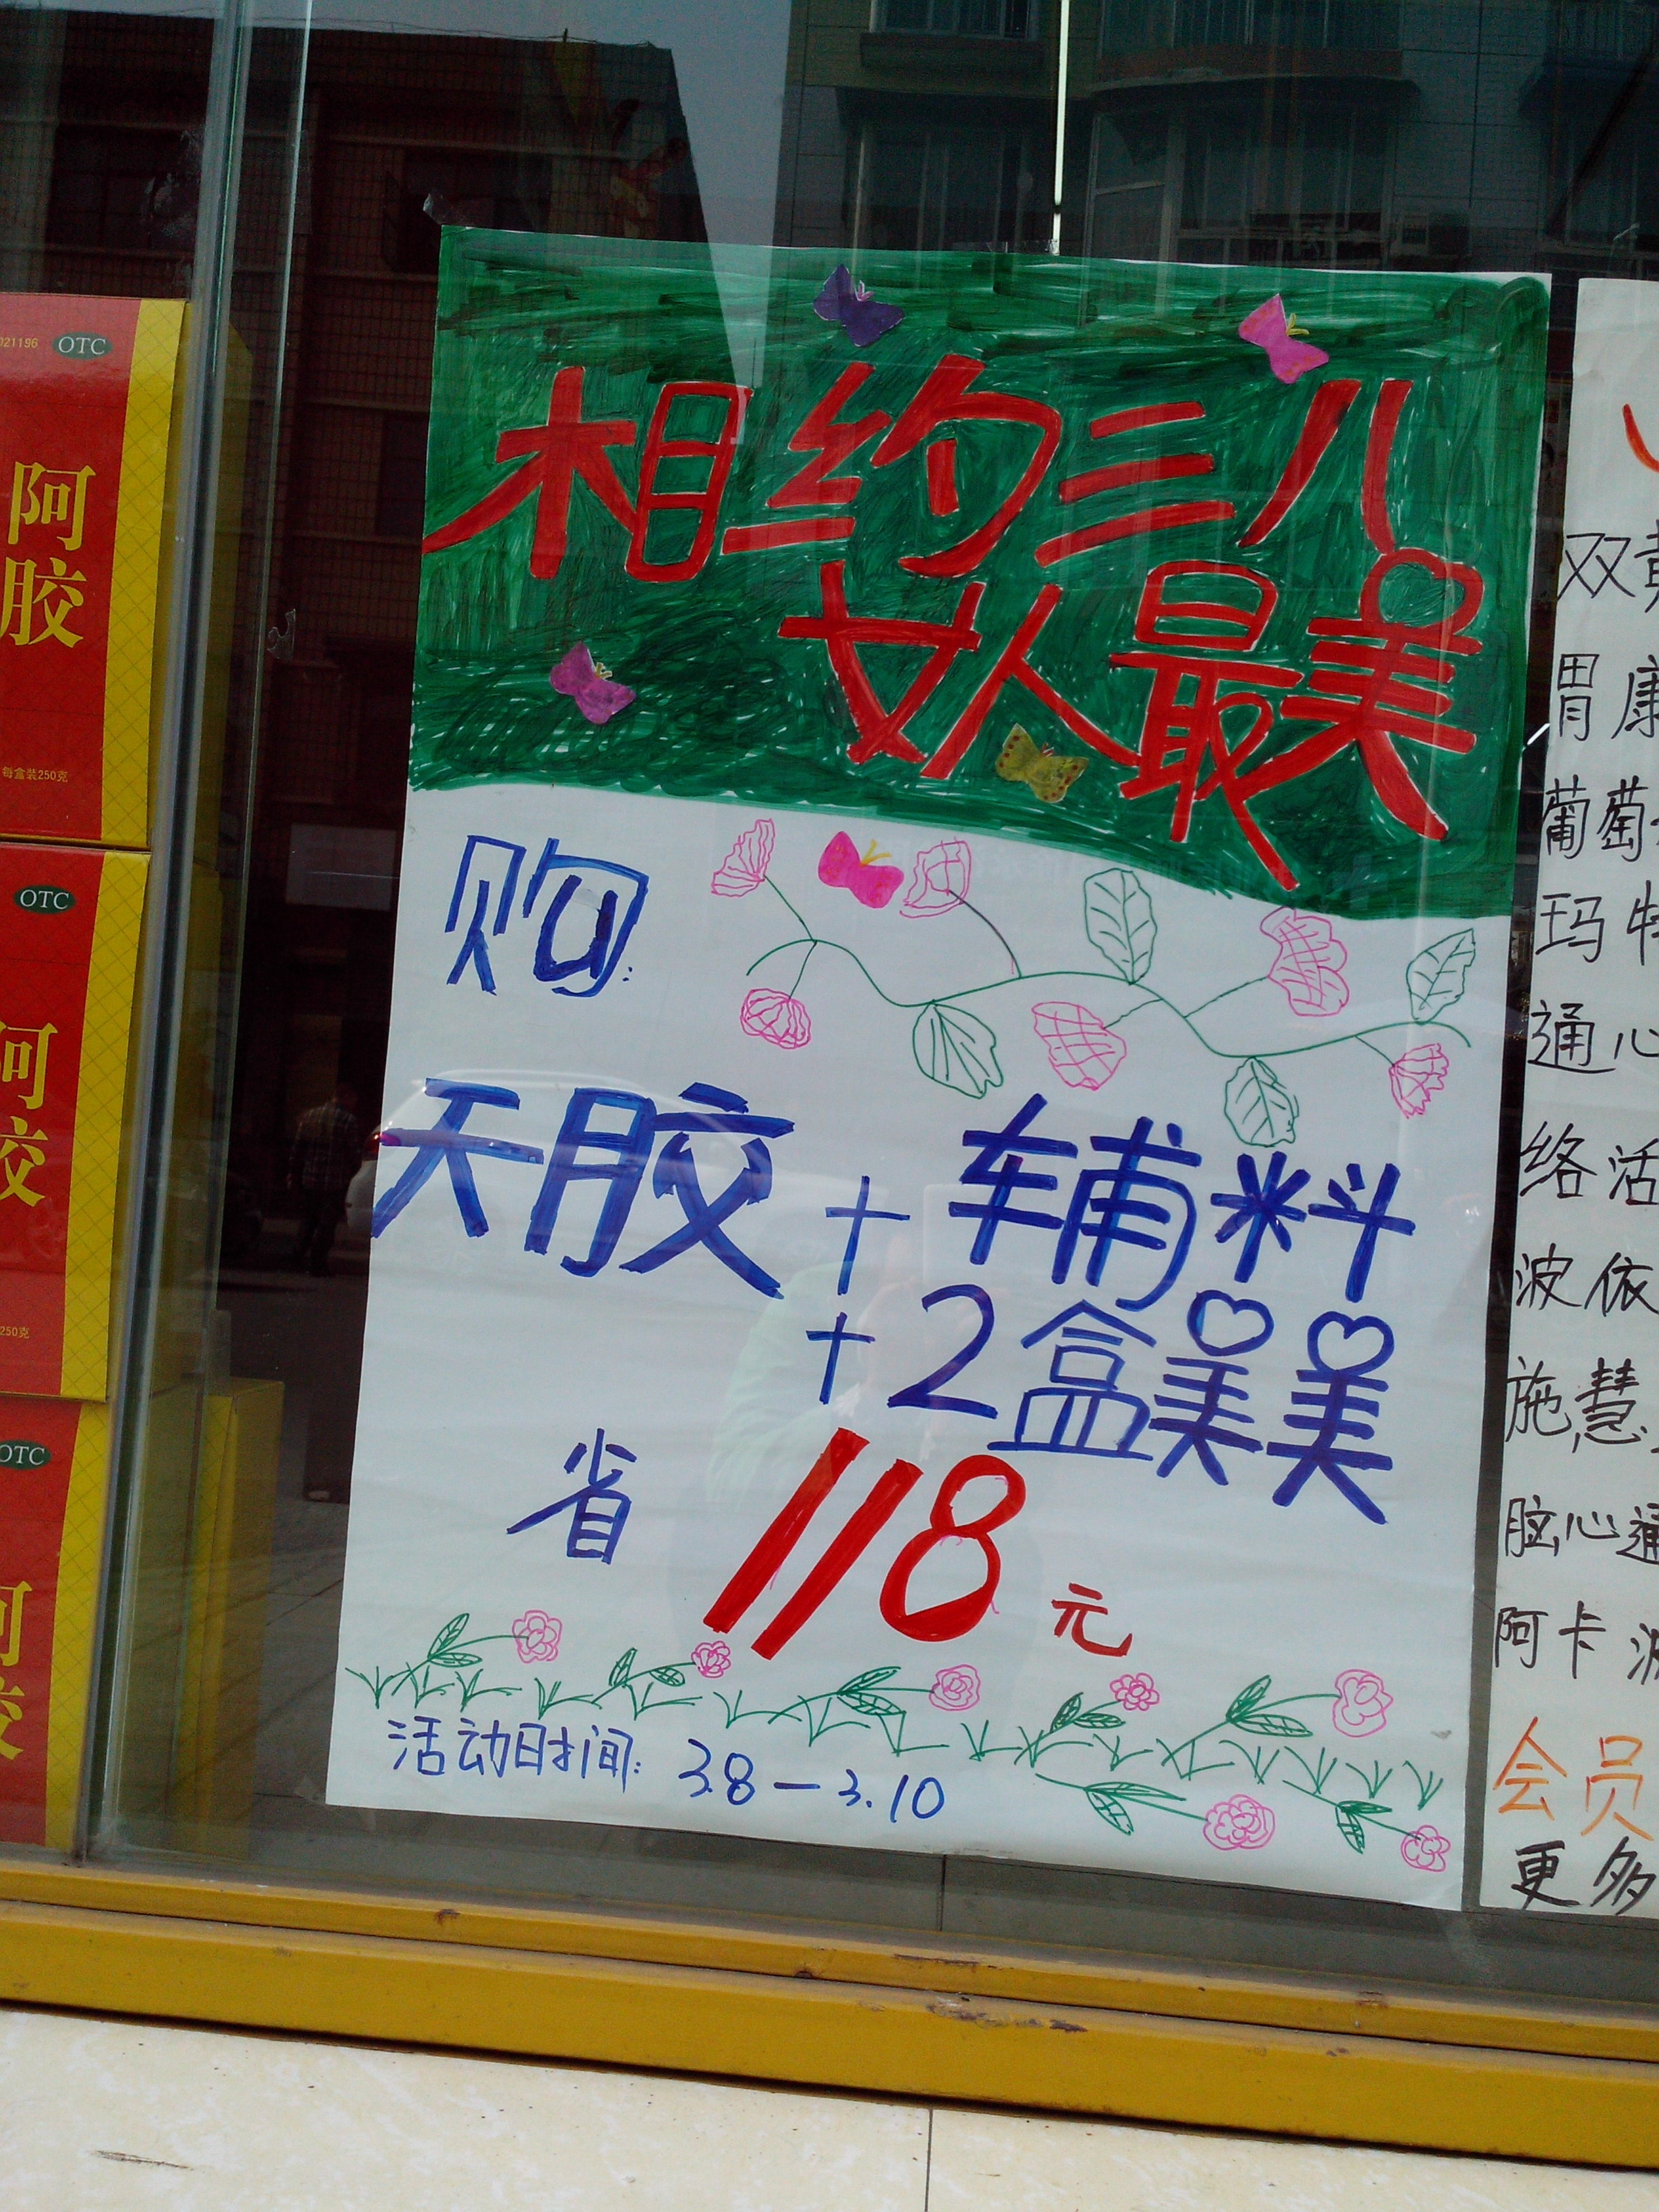 相约三八
女人最美
购
天胶+辅料
+2盒美美
省118元
活动日时间:3.8—3.10
021196 OTC
阿胶
每盒装250克
OTC
阿胶
250克
OTC
阿胶
双黄
胃康
葡萄
玛特
通心
络活
波依
施慧
脑心通
阿卡波
会员
更多